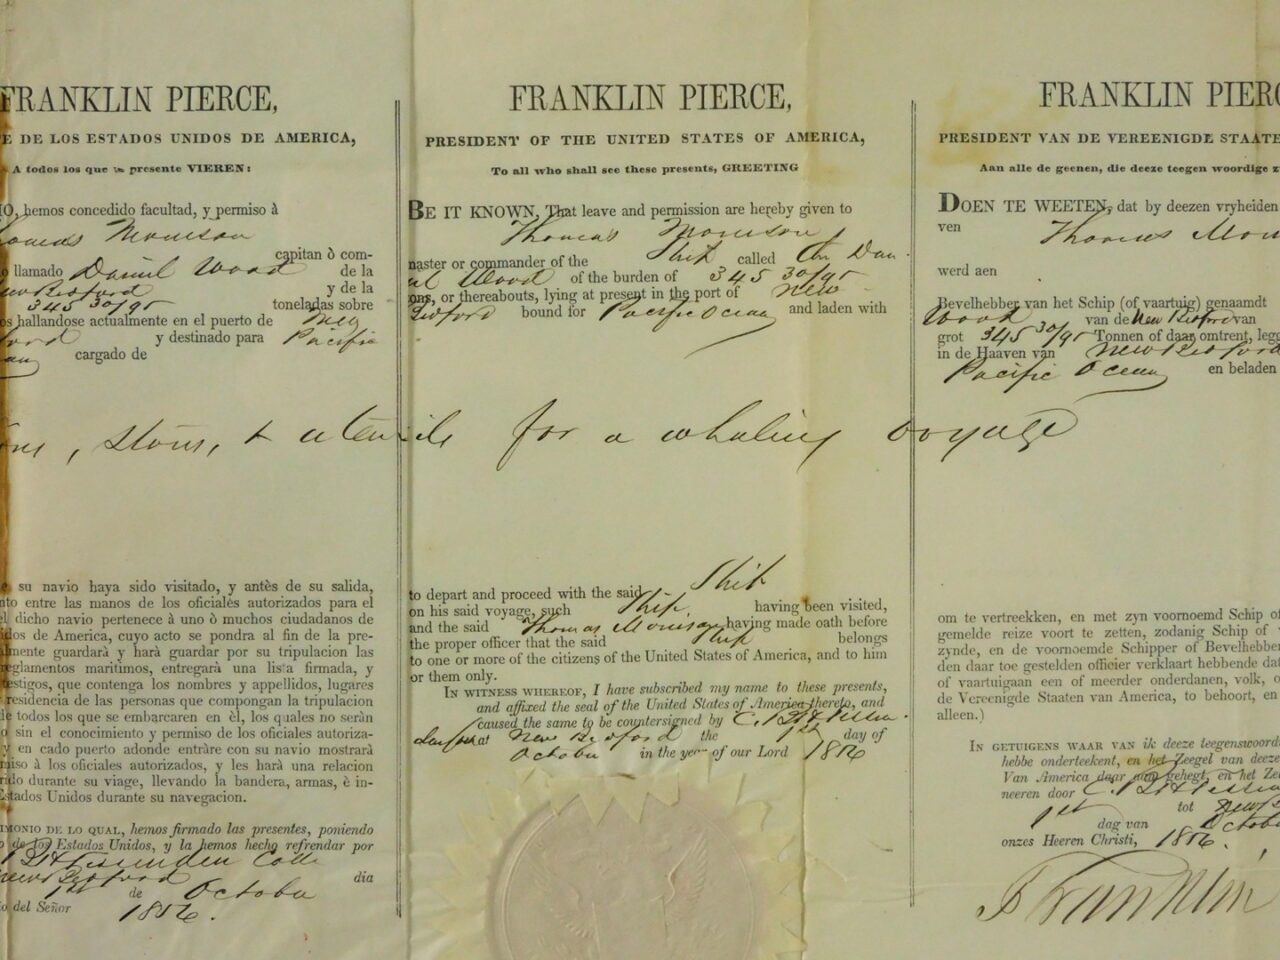 FRANKLIN PIERCE,
E DE LOS ESTADOS UNIDOS DE AMERICA,
A todos los que la presente VIEREN:
O, hemos concedido facultad, y permiso à
Thomas Morrison
capitan ò com-
llamado Daniel Wood de la
New Bedford y de la
345 30/95 toneladas sobre
os hallandose actualmente en el puerto de New
ford y destinado para Pacific
cargado de
, Stores, & utensils for a whaling voyage
su navio haya sido visitado, y antès de su salida,
nto entre las manos de los oficialès autorizados para el
l dicho navio pertenece à uno ò muchos ciudadanos de
idos de America, cuyo acto se pondra al fin de la pre-
lmente guardarà y harà guardar por su tripulacion las
eglamentos maritimos, entregarà una lista firmada, y
estigos, que contenga los nombres y appellidos, lugares
residencia de las personas que compongan la tripulacion
de todos los que se embarcaren en èl, los quales no seràn
o sin el conocimiento y permiso de los oficiales autoriza-
y en cado puerto adonde entràre con su navio mostrarà
miso à los oficiales autorizados, y les harà una relacion
rido durante su viage, llevando la bandera, armas, è in-
Estados Unidos durante su navegacion.
IMONIO DE LO QUAL, hemos firmado las presentes, poniendo
o de los Estados Unidos, y la hemos hecho refrendar por
C. B. H. Fessenden Coll
New Bedford dia
1st de October
o del Señor 1856.
FRANKLIN PIERCE,
PRESIDENT OF THE UNITED STATES OF AMERICA,
To all who shall see these presents, GREETING
BE IT KNOWN, That leave and permission are hereby given to
Thomas Morrison
master or commander of the Ship called the Dan
iel Wood of the burden of 345 30/95
ons, or thereabouts, lying at present in the port of New
Bedford bound for Pacific Ocean and laden with
to depart and proceed with the said Ship
on his said voyage, such Ship, having been visited,
and the said Thomas Morrison having made oath before
the proper officer that the said Ship belongs
to one or more of the citizens of the United States of America, and to him
or them only.
IN WITNESS WHEREOF, I have subscribed my name to these presents,
and affixed the seal of the United States of America thereto, and
caused the same to be countersigned by C. B. H. Fessen
den at New Bedford the 1st day of
October in the year of our Lord 1856
FRANKLIN PIERC
PRESIDENT VAN DE VEREENIGDE STAATE
Aan alle de geenen, die deeze teegen woordige z
DOEN TE WEETEN, dat by deezen vryheiden
ven Thomas Morr
werd aen
Bevelhebber van het Schip (of vaartuig) genaamdt
Wood van de New Bedford van
grot 345 30/95 Tonnen of daar omtrent, legg
in de Haaven van New Bedford
Pacific Ocean en beladen
om te vertreekken, en met zyn voornoemd Schip of
gemelde reize voort te zetten, zodanig Schip of
zynde, en de voornoemde Schipper of Bevelhebber
den daar toe gestelden officier verklaart hebbende dat
of vaartuigaan een of meerder onderdanen, volk, o
de Vereenigde Staaten van America, te behoort, en
alleen.)
IN GETUIGENS WAAR VAN ik deeze teegenswoordi
hebbe onderteekent, en het Zeegel van deeze
Van America daar aan gehegt, en het Ze
neeren door C. B. H. Fessen
1st tot New B
dag van October
onzes Heeren Christi, 1856.
Franklin